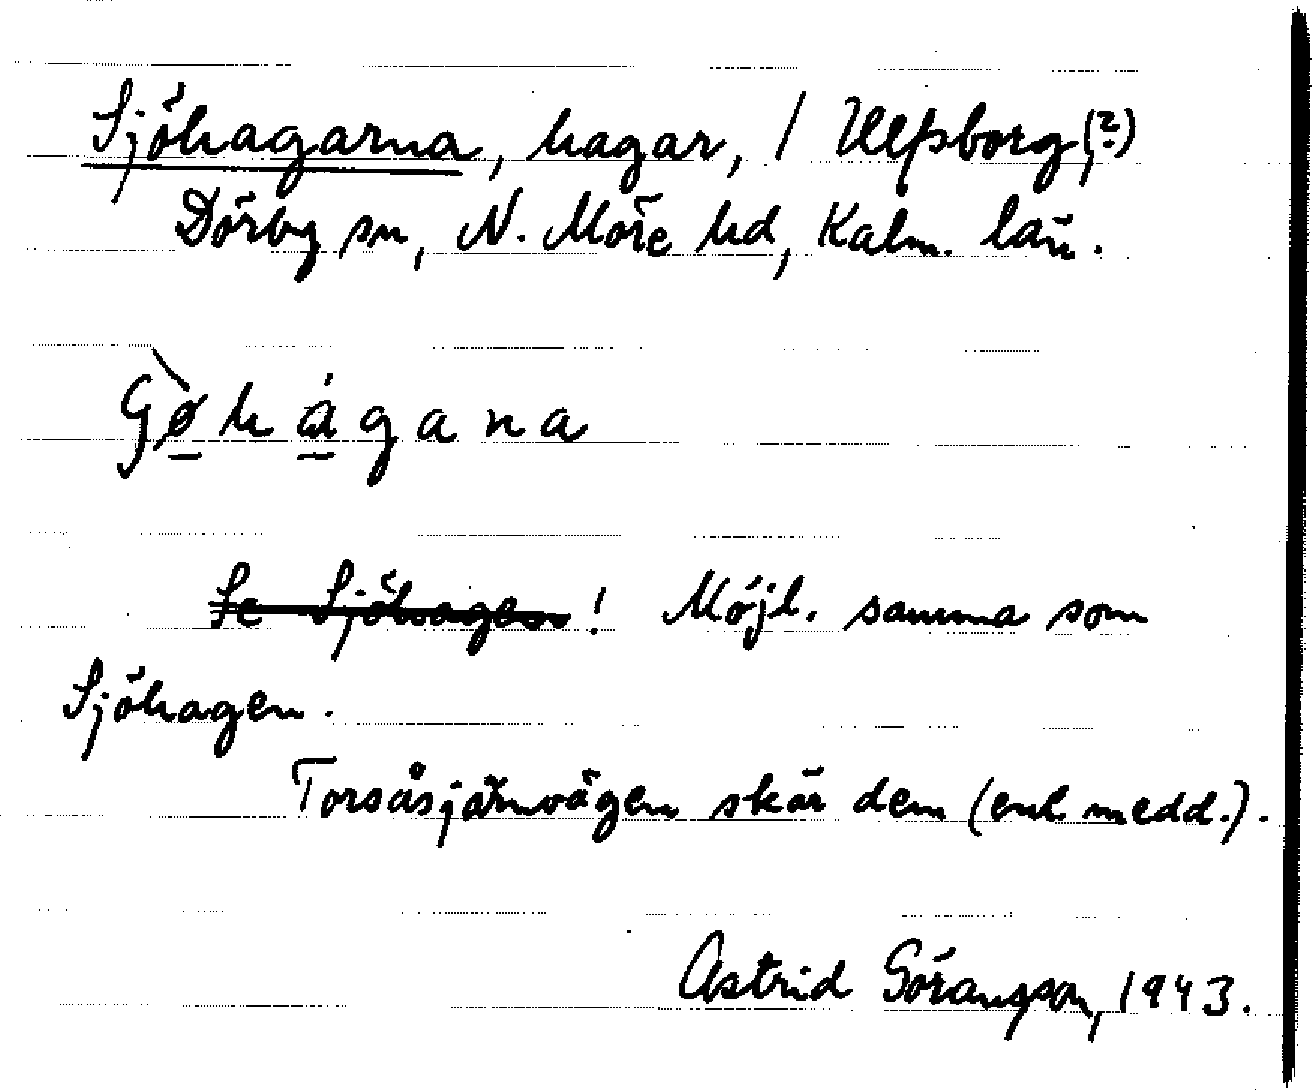 Sjöhagarna, hagar, / Ulfsborg,(?)
Dörby sn, N. Möre hd, Kalm. län.
Gø̀hágana
Se Sjöhagen! Möjl. samma som
Sjöhagen.
Torsåsjärnvägen skär dem (enl. medd.).
Astrid Göransson, 1943.